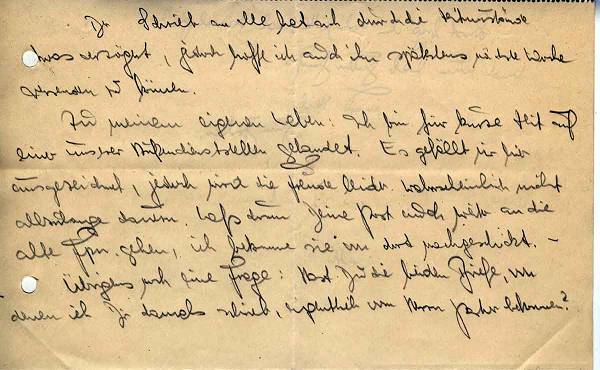 Der Brief an alle hat sich durch die Zeitumstände
etwas verzögert, jedoch hoffe ich auch ihn spätestens nächste Woche
versenden zu können.
Zu meinem eigenen Leben: Ich bin für kurze Zeit auf
einer unserer Außendienststellen gelandet. Es gefällt mir hier
ausgezeichnet, jedoch wird die Freude leider wahrscheinlich nicht
allzulange dauern. Laß drum Deine Post auch weiter an die
alte Fpn. gehen, ich bekomme sie von dort nachgeschickt. –
Übrigens noch eine Frage: Hast Du die beiden Briefe, von
denen ich Dir damals schrieb, eigentlich von Herrn bekommen?